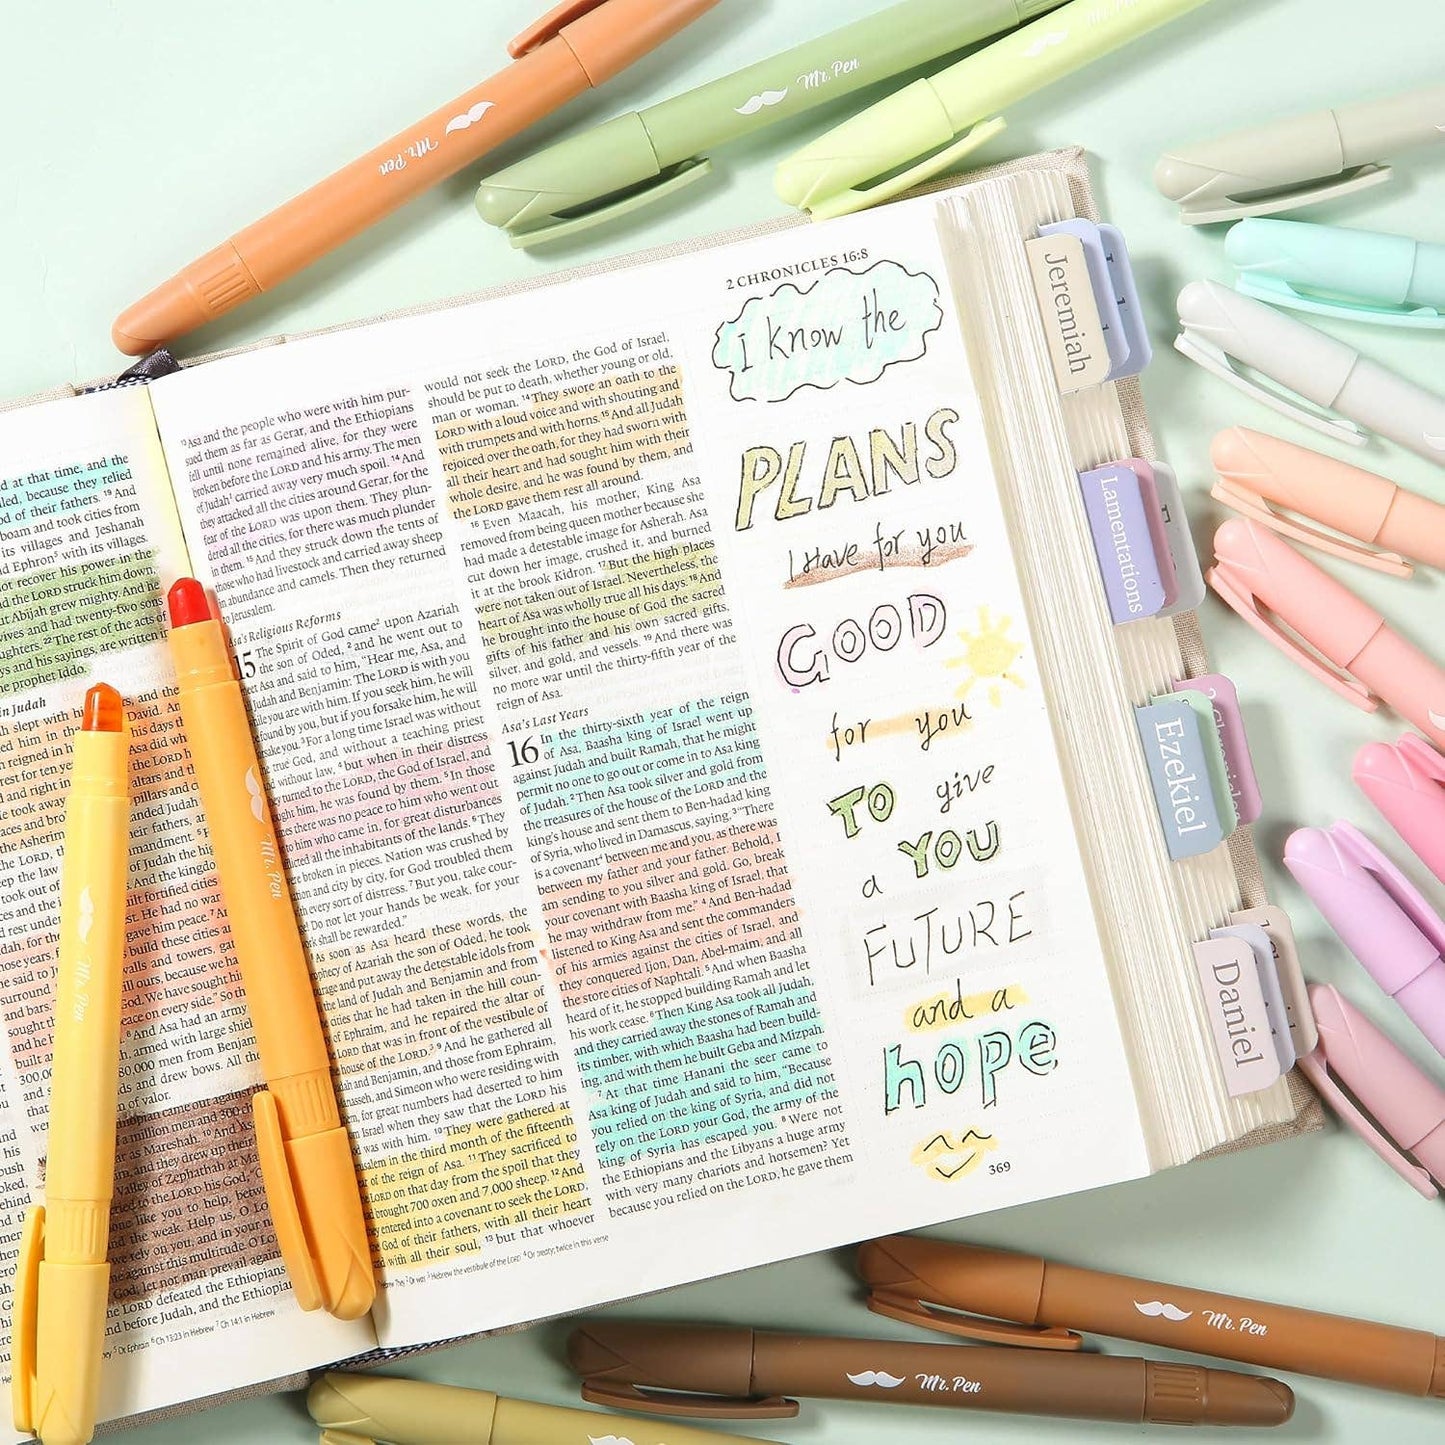 Mr. Pen
Mr. Pen
Mr. Pen
2 CHRONICLES 16:8
I know the
PLANS
I Have for you
GOOD
for you
TO give
a YOU
FUTURE
and a
hope
369
Jeremiah
Lamentations
Ezekiel
2 Chronicles
Daniel
at that time, and the
because they relied
of their fathers. 19 And
took cities from
its villages and Jeshanah
and Ephron5 with its villages.
recover his power in the
the LORD struck him down,
Abijah grew mighty. And
and had twenty-two sons
22 The rest of the acts of
and his sayings, are written in
the prophet Iddo.
in Judah
13 Asa and the people who were with him pur-
sued them as far as Gerar, and the Ethiopians
fell until none remained alive, for they were
broken before the LORD and his army. The men
of Judah1 carried away very much spoil. 14 And
they attacked all the cities around Gerar, for the
fear of the LORD was upon them. They plun-
dered all the cities, for there was much plunder
in them. 15 And they struck down the tents of
those who had livestock and carried away sheep
in abundance and camels. Then they returned
to Jerusalem.
Asa's Religious Reforms
15 The Spirit of God came2 upon Azariah
the son of Oded, 2 and he went out to
meet Asa and said to him, "Hear me, Asa, and
all Judah and Benjamin: The LORD is with you
while you are with him. If you seek him, he will
be found by you, but if you forsake him, he will
forsake you. 3 For a long time Israel was without
the true God, and without a teaching priest
and without law, 4 but when in their distress
they turned to the LORD, the God of Israel, and
sought him, he was found by them. 5 In those
times there was no peace to him who went out
or to him who came in, for great disturbances
afflicted all the inhabitants of the lands. 6 They
were broken in pieces. Nation was crushed by
nation and city by city, for God troubled them
with every sort of distress. 7 But you, take cour-
age! Do not let your hands be weak, for your
work shall be rewarded."
8 As soon as Asa heard these words, the
prophecy of Azariah the son of Oded, he took
courage and put away the detestable idols from
all the land of Judah and Benjamin and from
the cities that he had taken in the hill coun-
try of Ephraim, and he repaired the altar of
the LORD that was in front of the vestibule of
the house of the LORD.3 9 And he gathered all
Judah and Benjamin, and those from Ephraim,
Manasseh, and Simeon who were residing with
them, for great numbers had deserted to him
from Israel when they saw that the LORD his
God was with him. 10 They were gathered at
Jerusalem in the third month of the fifteenth
year of the reign of Asa. 11 They sacrificed to
the LORD on that day from the spoil that they
had brought 700 oxen and 7,000 sheep. 12 And
they entered into a covenant to seek the LORD,
the God of their fathers, with all their heart
and with all their soul, 13 but that whoever
would not seek the LORD, the God of Israel,
should be put to death, whether young or old,
man or woman. 14 They swore an oath to the
LORD with a loud voice and with shouting and
with trumpets and with horns. 15 And all Judah
rejoiced over the oath, for they had sworn with
all their heart and had sought him with their
whole desire, and he was found by them, and
the LORD gave them rest all around.
16 Even Maacah, his mother, King Asa
removed from being queen mother because she
had made a detestable image for Asherah. Asa
cut down her image, crushed it, and burned
it at the brook Kidron. 17 But the high places
were not taken out of Israel. Nevertheless, the
heart of Asa was wholly true all his days. 18 And
he brought into the house of God the sacred
gifts of his father and his own sacred gifts,
silver, and gold, and vessels. 19 And there was
no more war until the thirty-fifth year of the
reign of Asa.
Asa's Last Years
16 In the thirty-sixth year of the reign
of Asa, Baasha king of Israel went up
against Judah and built Ramah, that he might
permit no one to go out or come in to Asa king
of Judah. 2 Then Asa took silver and gold from
the treasures of the house of the LORD and the
king's house and sent them to Ben-hadad king
of Syria, who lived in Damascus, saying, 3 "There
is a covenant4 between me and you, as there was
between my father and your father. Behold, I
am sending to you silver and gold. Go, break
your covenant with Baasha king of Israel, that
he may withdraw from me." 4 And Ben-hadad
listened to King Asa and sent the commanders
of his armies against the cities of Israel, and
they conquered Ijon, Dan, Abel-maim, and all
the store cities of Naphtali. 5 And when Baasha
heard of it, he stopped building Ramah and let
his work cease. 6 Then King Asa took all Judah,
and they carried away the stones of Ramah and
its timber, with which Baasha had been build-
ing, and with them he built Geba and Mizpah.
7 At that time Hanani the seer came to
Asa king of Judah and said to him, "Because
you relied on the king of Syria, and did not
rely on the LORD your God, the army of the
king of Syria has escaped you. 8 Were not
the Ethiopians and the Libyans a huge army
with very many chariots and horsemen? Yet
because you relied on the LORD, he gave them
Mr. Pen
Mr. Pen
Mr. Pen
Mr. Pen